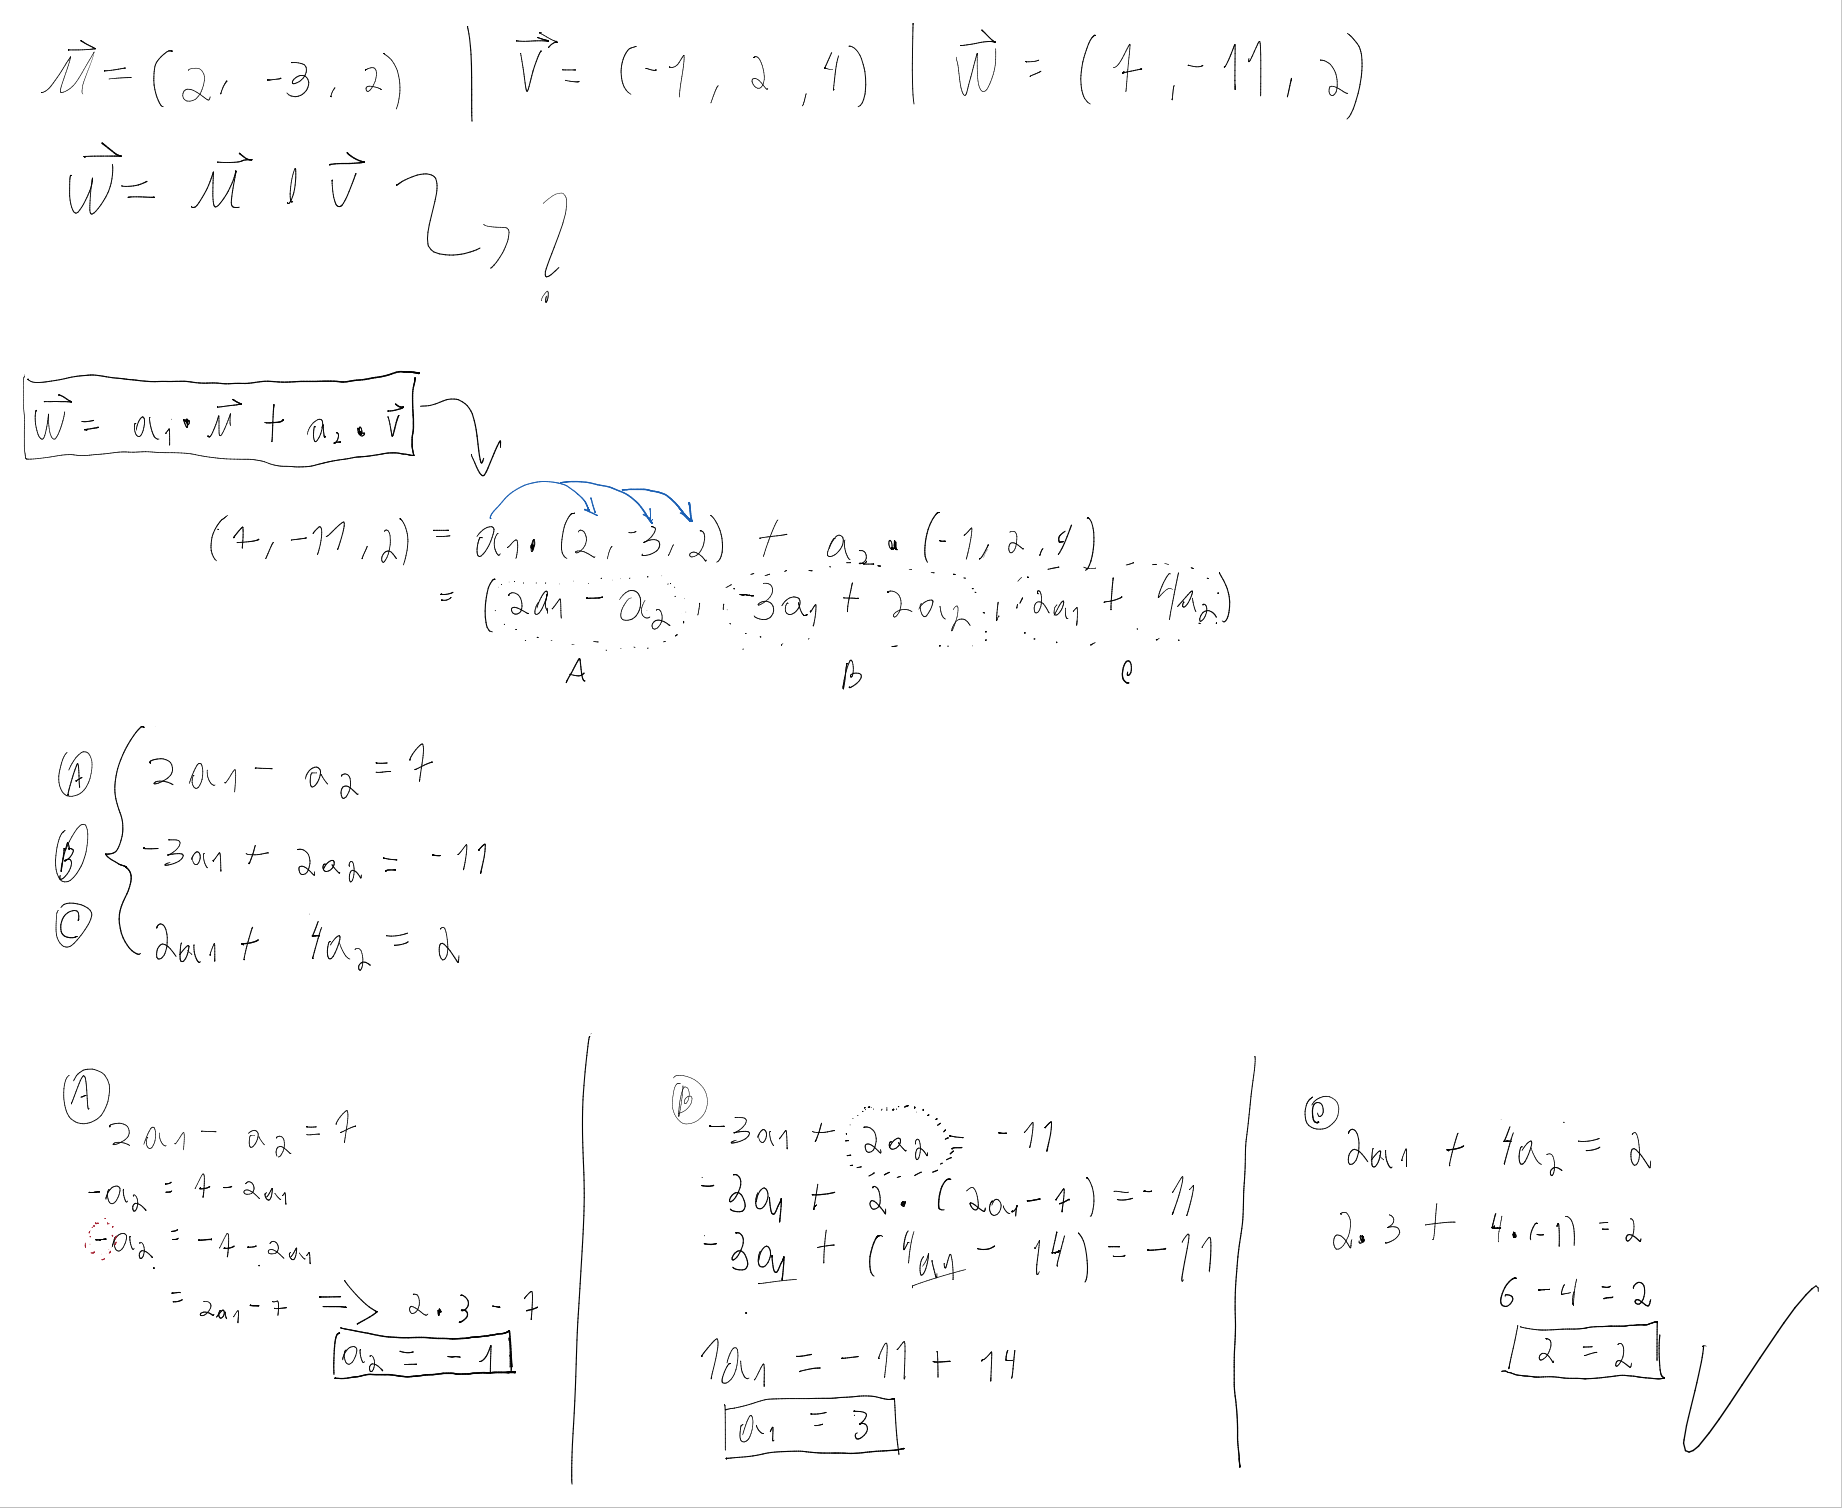 u⃗ = (2, -3, 2) | v⃗ = (-1, 2, 4) | w⃗ = (7, -11, 2)
w⃗ = u⃗ , v⃗ → ?
w⃗ = a₁ • u⃗ + a₂ • v⃗
(7, -11, 2) = a₁ • (2, -3, 2) + a₂ • (-1, 2, 4)
= (2a₁ - a₂, -3a₁ + 2a₂, 2a₁ + 4a₂)
A B C
Ⓐ { 2a₁ - a₂ = 7
Ⓑ -3a₁ + 2a₂ = -11
Ⓒ 2a₁ + 4a₂ = 2
Ⓐ
2a₁ - a₂ = 7
-a₂ = 7 - 2a₁
-a₂ = -7 - 2a₁
= 2a₁ - 7 => 2 • 3 - 7
a₂ = -1
Ⓑ
-3a₁ + 2a₂ = -11
-3a₁ + 2 • (2a₁ - 7) = -11
-3a₁ + (4a₁ - 14) = -11
1a₁ = -11 + 14
a₁ = 3
Ⓒ
2a₁ + 4a₂ = 2
2 • 3 + 4 • (-1) = 2
6 - 4 = 2
2 = 2